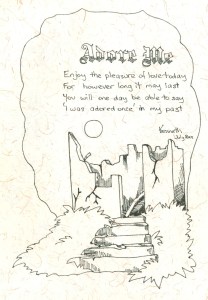 Adore Me
Enjoy the pleasure of love today
For however long it may last
You will one day be able to say
'I was adored once' in my past
July